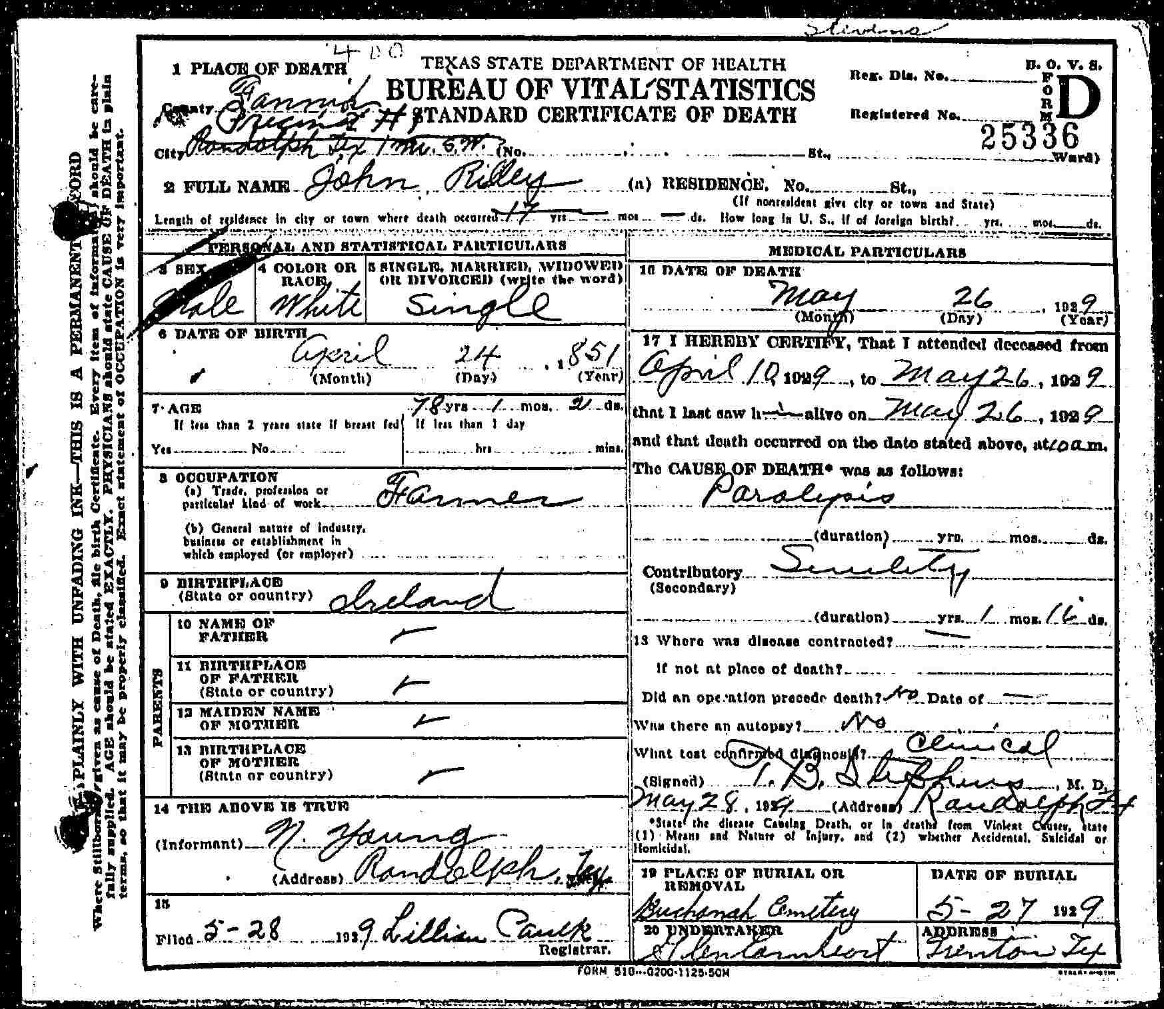 Stevens
400
TEXAS STATE DEPARTMENT OF HEALTH
BUREAU OF VITAL STATISTICS
STANDARD CERTIFICATE OF DEATH
B. O. V. S.
FORM D
Reg. Dis. No.
Registered No.
25336
1 PLACE OF DEATH
County Fannin
Precinct #
City Randolph Tex 1 mi. S.W. (No. St., Ward)
2 FULL NAME John Riley (a) RESIDENCE. No. St.,
(If nonresident give city or town and State)
Length of residence in city or town where death occurred 17 yrs — mos — ds. How long in U. S., if of foreign birth? yrs. mos. ds.
PERSONAL AND STATISTICAL PARTICULARS
3 SEX
Male
4 COLOR OR RACE
White
5 SINGLE, MARRIED, WIDOWED OR DIVORCED (write the word)
Single
6 DATE OF BIRTH
April 24, 1851
(Month) (Day) (Year)
7 AGE 78 yrs 1 mos. 2 ds.
If less than 2 years state if breast fed
Yes No
If less than 1 day
hrs mins.
8 OCCUPATION
(a) Trade, profession or
particular kind of work Farmer
(b) General nature of industry,
business or establishment in
which employed (or employer)
9 BIRTHPLACE
(State or country) Ireland
PARENTS
10 NAME OF
FATHER
11 BIRTHPLACE
OF FATHER
(State or country)
12 MAIDEN NAME
OF MOTHER
13 BIRTHPLACE
OF MOTHER
(State or country)
14 THE ABOVE IS TRUE
(Informant) N. Young
(Address) Randolph, Tex
15
Filed 5-28 1929 Lillian Caulk
Registrar.
MEDICAL PARTICULARS
16 DATE OF DEATH
May 26, 1929
(Month) (Day) (Year)
17 I HEREBY CERTIFY, That I attended deceased from
April 10, 1929, to May 26, 1929
that I last saw him alive on May 26, 1929
and that death occurred on the date stated above, at 10 a m.
The CAUSE OF DEATH* was as follows:
Paralysis
(duration) yrs. mos. ds.
Contributory Senility
(Secondary)
(duration) yrs. 1 mos. 16 ds.
18 Where was disease contracted? —
If not at place of death?
Did an operation precede death? No Date of —
Was there an autopsy? No
What test confirmed diagnosis? Clinical
(Signed) T. B. Stephens, M. D.
May 28, 1929 (Address) Randolph Tex
*State the disease Causing Death, or in deaths from Violent Causes, state
(1) Means and Nature of Injury, and (2) whether Accidental, Suicidal or
Homicidal.
19 PLACE OF BURIAL OR
REMOVAL
Buchanan Cemetery
DATE OF BURIAL
5-27 1929
20 UNDERTAKER
ADDRESS
Trenton Tex
FORM 510---0200-1125-50M
PLAINLY WITH UNFADING INK—THIS IS A PERMANENT RECORD
Where Stillborn given as cause of Death, file birth Certificate. Every item of information should be care-
fully supplied. AGE should be stated EXACTLY. PHYSICIANS should state CAUSE OF DEATH in plain
terms, so that it may be properly classified. Exact statement of OCCUPATION is very important.